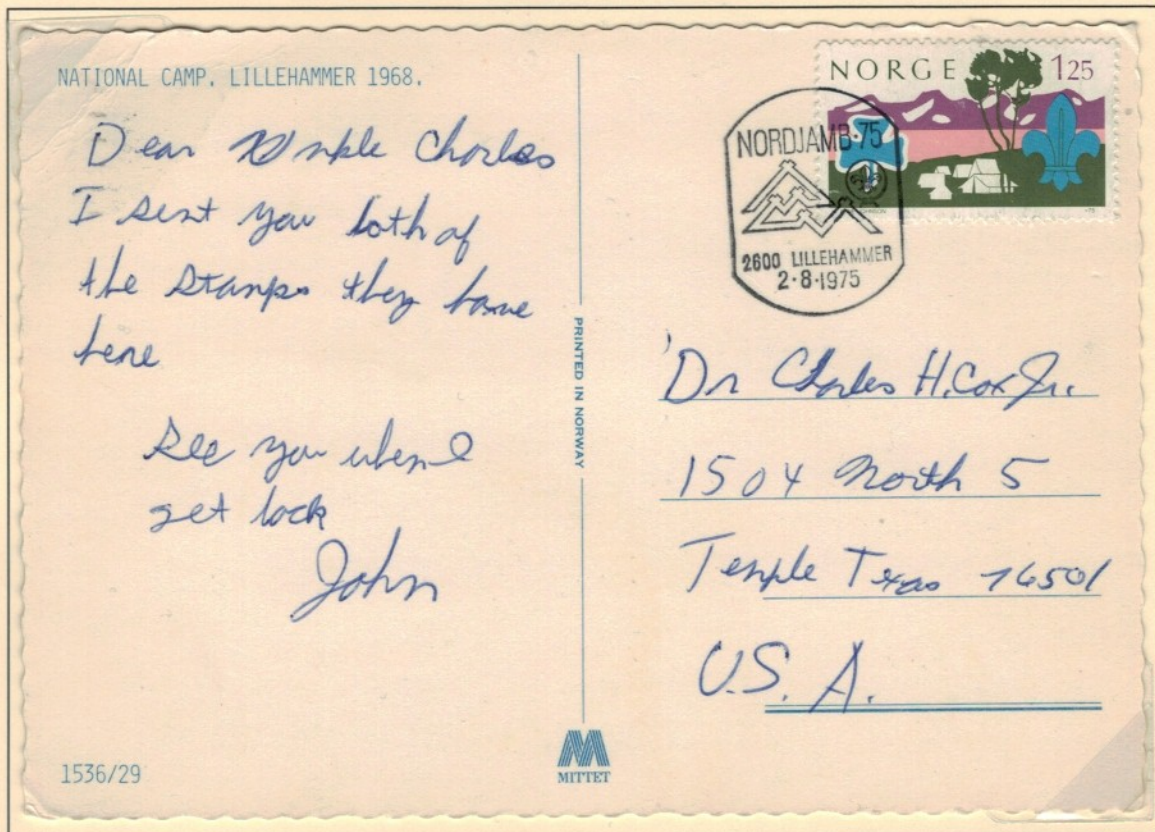 NATIONAL CAMP. LILLEHAMMER 1968.
Dear Unkle Charles
I sent you both of
the stamps they have
here
See you when I
get back
John
1536/29
PRINTED IN NORWAY
MITTET
NORGE 125
NORDJAMB·75
2600 LILLEHAMMER
2·8·1975
Dr Charles H. Cox Jr.
1504 North 5
Temple Texas 76501
U.S. A.